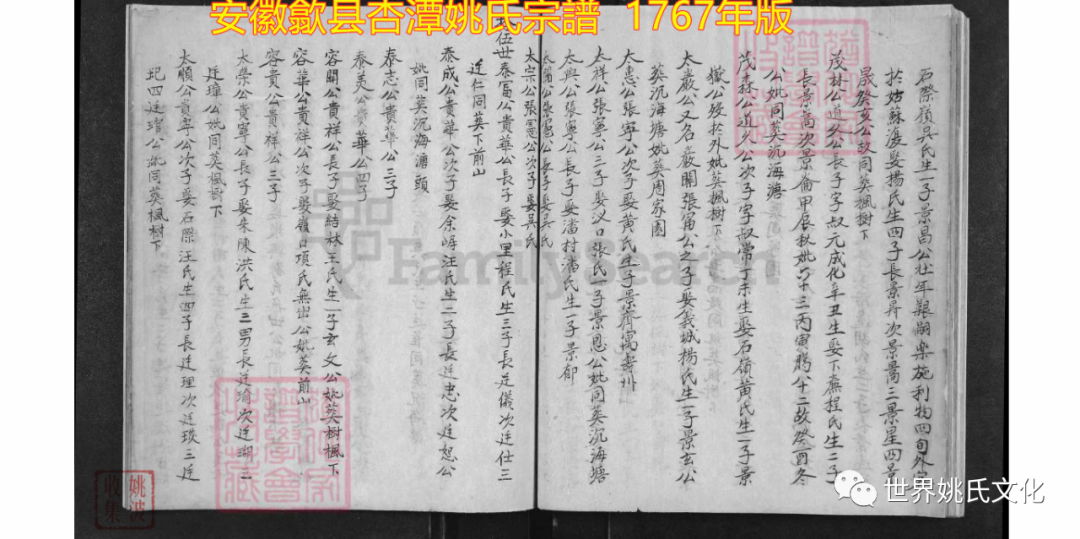 安徽歙县杏潭姚氏宗譜 1767年版
石際嶺吳氏生一子景昌公壯年艱嗣樂施利物四旬外
於姑蘇復娶楊氏生四子長景昇次景暠三景星四景
晟癸亥公故同塟楓樹下
茂林公道久公長子字叔元成化辛丑生娶下蕪程氏生二子
長景高次景崙甲辰秋妣八十三丙寅騰八十二故癸酉冬
公妣同塟沉海塘
茂森公道久公次子字叔常丁未生娶石嶺黃氏生一子景
嶽公歿於外妣塟楓樹下
太嚴公又名嚴關張富公之子娶義城楊氏生一子景玄公
塟沉海塘妣塟周家園
太惠公張寧公次子娶黃氏生子景薺寓壽州
太祥公張憲公三子娶汊口張氏一子景恩公妣同塟沉海塘
太興公張寧公長子娶潘村潘氏生一子景郁
太宗公張憲公次子娶吳氏
伍世泰富公貴華公長子娶小里程氏生三子長廷儀次廷仕三
廷仁同塟下前山
泰成公貴華公次子娶余岸汪氏生二子長廷忠次廷恕公
妣同塟沉海塘頭
泰志公貴華公三子
泰美公貴華公四子
容閏公貴祥公長子娶結林王氏生一子玄文公妣塟樹楓下
容華公貴祥公次子娶嶺口項氏無出公妣塟前山
容貴公貴祥公三子
太榮公貴寧公長子娶朱陳洪氏生三男長廷瑜次廷瑚三
廷璋公妣同塟楓樹下
太順公貴寧公次子娶石際汪氏生四子長廷理次廷瑛三廷
玘四廷瑁公妣同塟楓樹下
FamilySearch
姚波
收集
世界姚氏文化